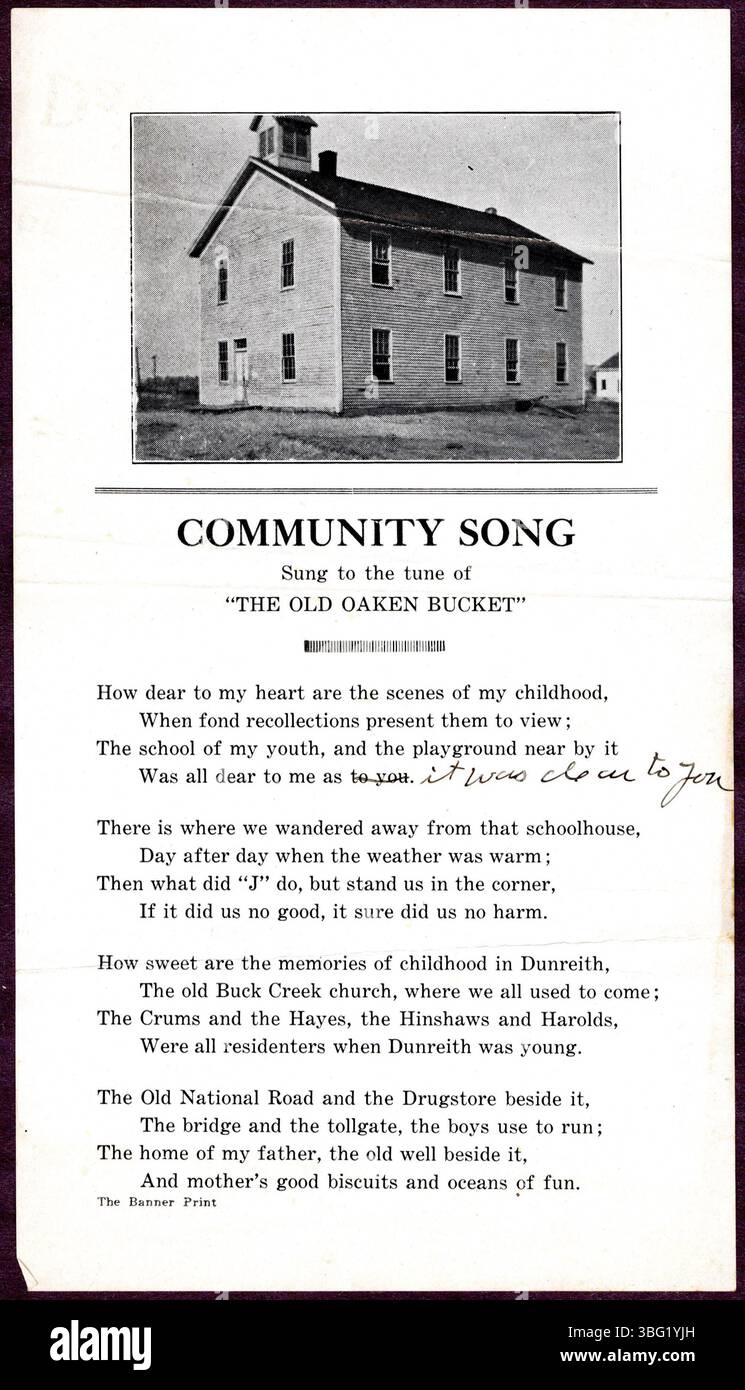 COMMUNITY SONG
Sung to the tune of
"THE OLD OAKEN BUCKET"
How dear to my heart are the scenes of my childhood,
When fond recollections present them to view;
The school of my youth, and the playground near by it
Was all dear to me as to you. it was dear to you
There is where we wandered away from that schoolhouse,
Day after day when the weather was warm;
Then what did "J" do, but stand us in the corner,
If it did us no good, it sure did us no harm.
How sweet are the memories of childhood in Dunreith,
The old Buck Creek church, where we all used to come;
The Crums and the Hayes, the Hinshaws and Harolds,
Were all residenters when Dunreith was young.
The Old National Road and the Drugstore beside it,
The bridge and the tollgate, the boys use to run;
The home of my father, the old well beside it,
And mother's good biscuits and oceans of fun.
The Banner Print
alamy
Image ID: 3BG1YJH
www.alamy.com